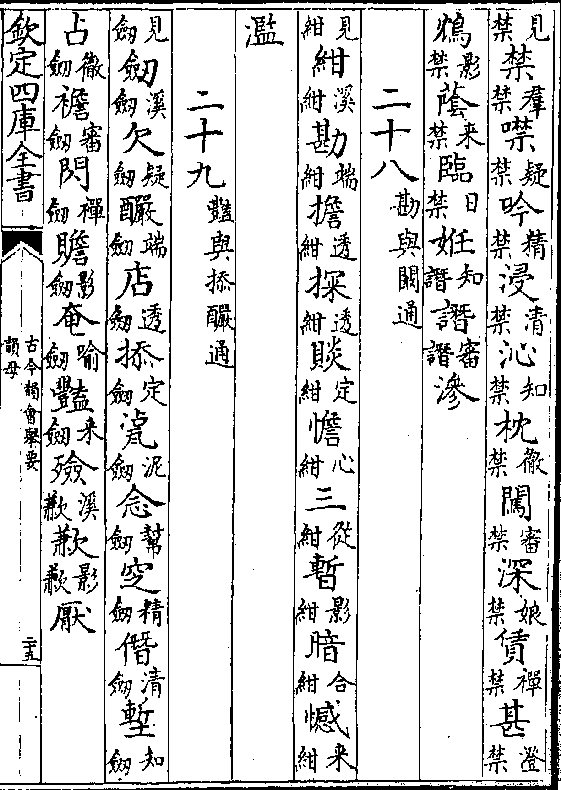 見禁禁羣禁噤疑禁吟精禁浸清禁沁知禁枕徹禁闖審禁深娘禁賃禪禁甚澄禁
鴆影禁蔭来禁臨日禁妊知譖譖審譖滲
二十八勘與闞通
見紺紺溪紺勘端紺擔透紺探透紺賧定紺憺心紺三從紺暫影紺暗合紺憾来紺
濫
二十九豔與㮇釅通
見劒劒溪劒欠疑劒釅端劒店透劒㮇定劒泥劒念幫劒窆精劒僭清劒塹知劒
占徹劒襜審劒閃禪劒贍影劒奄喻劒豔来劒殮溪歉歉影歉厭
欽定四庫全書
古今韻會舉要
韻母
二十五